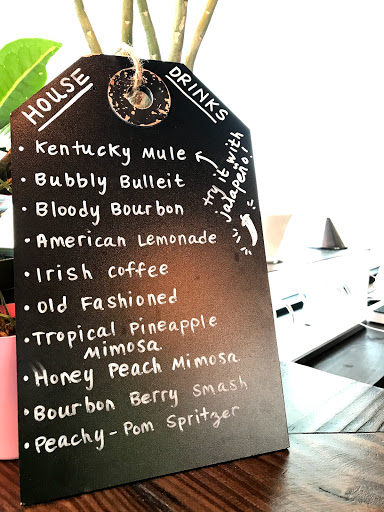 HOUSE DRINKS
• Kentucky Mule
try it with
jalapeño!
• Bubbly Bulleit
• Bloody Bourbon
• American Lemonade
• Irish Coffee
• Old Fashioned
• Tropical Pineapple
Mimosa
• Honey Peach Mimosa
• Bourbon Berry Smash
• Peachy-Pom Spritzer